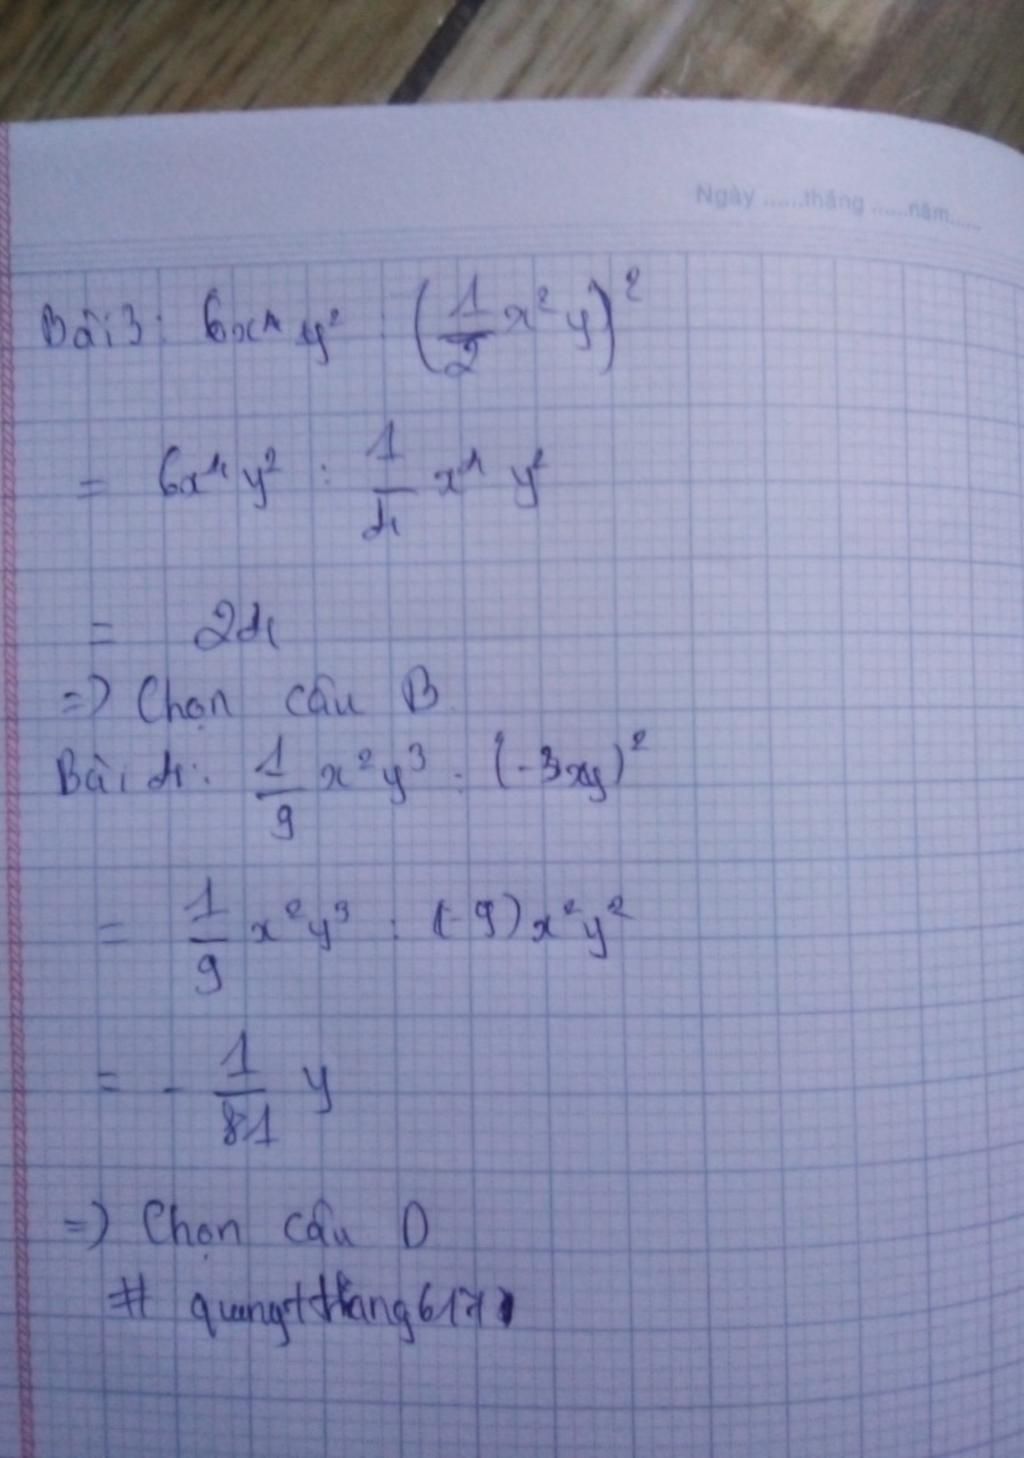 Ngày ......tháng ......năm......
Bài 3: 6x⁴ y² : (1/2 x² y)²
= 6x⁴ y² : 1/4 x⁴ y²
= 24
=> Chọn câu B
Bài 4: 1/9 x² y³ : (-3xy)²
= 1/9 x² y³ : (-9) x² y²
= - 1/81 y
=> Chọn câu D